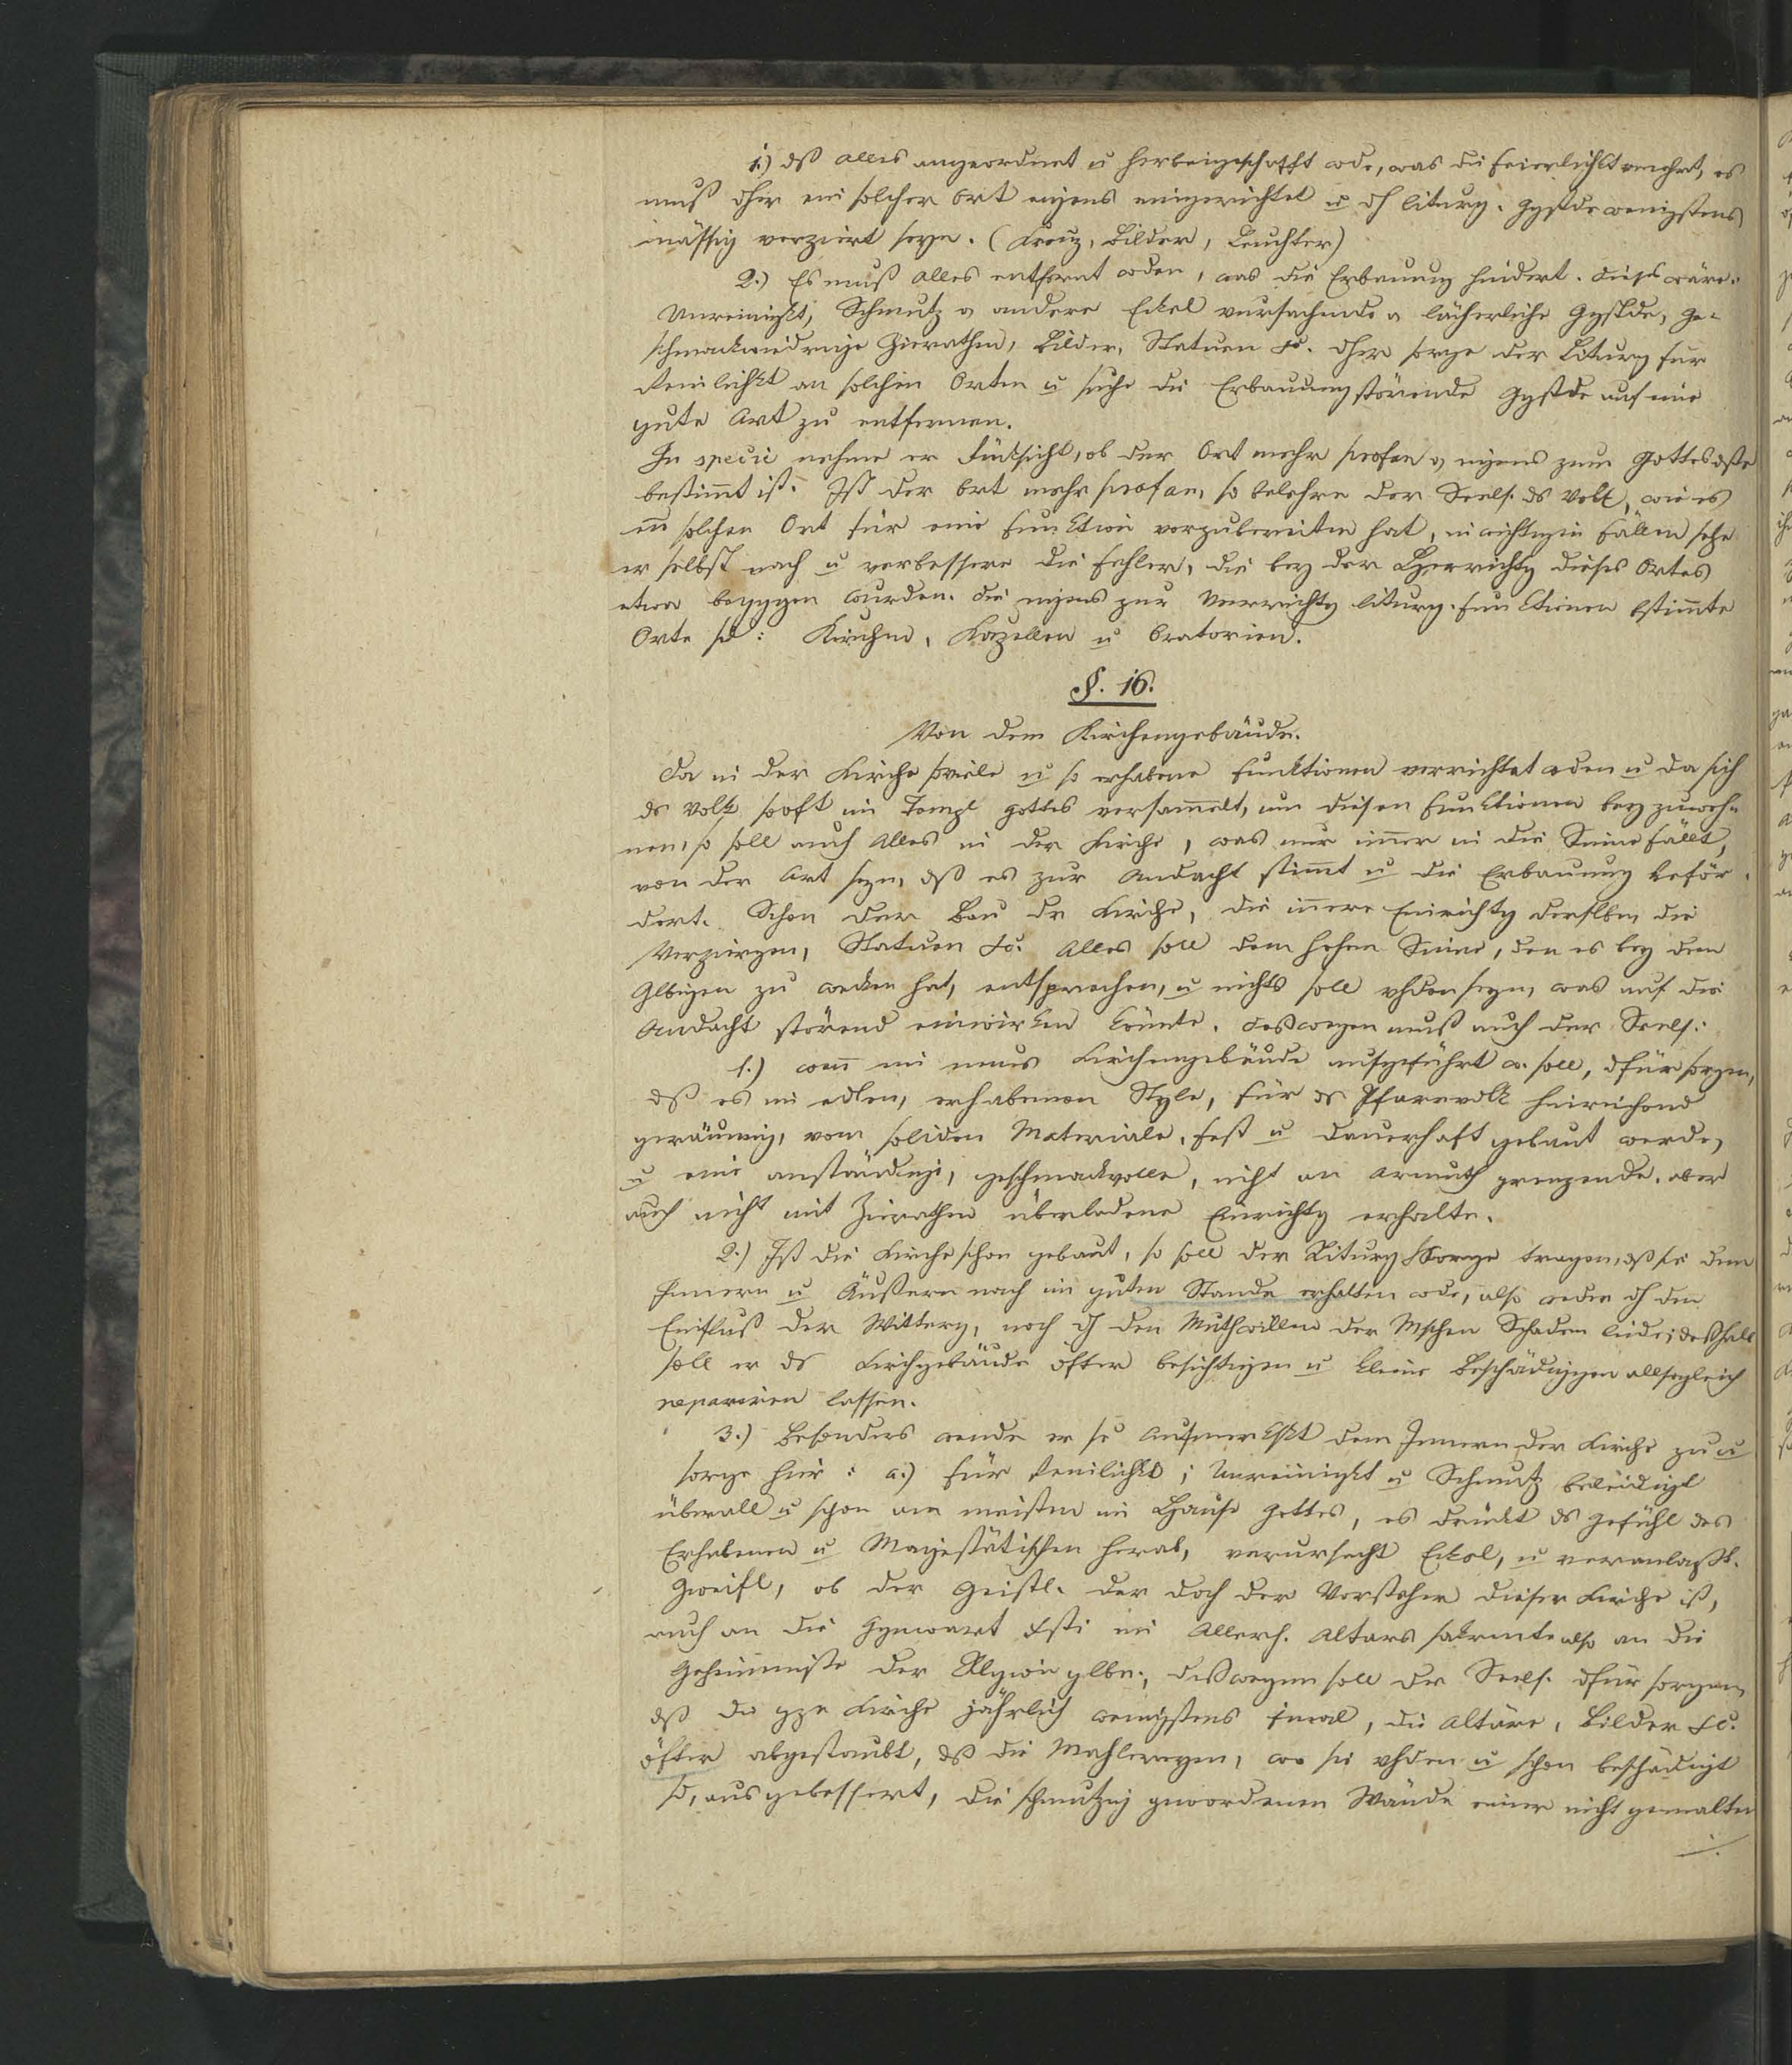 1.) dß alles angeordnet u herbeigeschafft wde, was die Feierlichkt vermehrt, es
muß dher ein solcher Ort eigens eingerichtet u dh liturg. Ggstde wenigstens
mässig verziert seyn. (Kreuz, Bilder, Leuchter)
2.) Es muß alles entfernt wden, was die Erbauung hindert. dieß wäre:
Unreinigkt, Schmutz u andere Eckel verursachende u lächerliche Ggstde, ge-
schmackwidrige Zierathen, Bilder, Statuen etc. dher sorge der Liturg für
Reinlichkt an solchen Orten u suche die Erbauung störende Ggstde auf eine
gute Art zu entfernen.
In specie nehme er Rücksicht, ob der Ort mehr profan o eigens zum Gottesdste
bestimmt ist. Ist der Ort mehr profan, so belehre der Seels. ds Volk, wie es
ein solchen Ort für eine Funktion vorzubereiten hat, in wichtigen Fällen sehe
er selbst nach u verbessere die Fehler, die bey der Herrichtg dieses Ortes
etwa begggen wurden. die eigens zur Verrichtg liturg. Funktionen bstimte
Orte sd: Kirchen, Kapellen u Oratorien.
§. 16.
Von dem Kirchengebäude.
Da in der Kirche soviele u so erhabene Funktionen verrichtet wden u da sich
ds Volk sooft im Templ Gottes versammelt, um diesen Funktionen beyzuwoh-
nen, so soll auch Alles in der Kirche, was nur immer in die Sinne fällt,
von der Art seyn, dß es zur Andacht stimmt u die Erbauung beför-
dert. Schon der Bau dr Kirche, die innere Einrichtg derslben, die
Verzirgen, Statuen etc. alles soll dem hohen Sinne, den es bey den
Glbigen zu wecken hat, entsprechen, u nichts soll vhden seyn, was auf die
Andacht störend einwirken könnte. deßwegen muß auch der Seels.:
1.) wenn ein neues Kirchengebäude aufgeführt w. soll, dfür sorgen,
dß es im edlen, erhabenen Style, für ds Pfarrvolk hinreichend
geräumig, vom soliden Materiale, fest u dauerhaft gebaut werde,
u eine anständige, geschmackvolle, nicht an Armuth grenzende, aber
auch nicht mit Zierathen überladene Einrichtg erhalte.
2.) Ist die Kirche schon gebaut, so soll der Liturg Sorge tragen, dß sie dem
Innern u Äußern nach im guten Stande erhalten wde, also weder dh den
Einfluß der Witterg, noch dh den Muthwillen der Mschen Schaden leide; deßhalb
soll er ds Kirchgebäude öfter besichtigen u kleine Beschädiggen allsogleich
repariren lassen.
3.) Besonders wende er se Aufmerkskt dem Innern der Kirche zu u
sorge hier: a.) für Reinlichkt; Unreinigkt u Schmutz beleidigt
überall u schon am meisten im Hause Gottes, es drückt ds Gefühl des
Erhabenen u Majestätischen herab, verursacht Eckel, u veranlaßt
Zweifl, ob der Geistl. der doch der Vorsteher dieser Kirche ist,
auch an die Ggnwart Xsti im Allerh. Altars sakrmte also an die
Geheimnisse der Rlgion glbe; deßwegen soll der Seels. dfür sorgen,
dß die gze Kirche jährlich wenigstens 1mal, die Altäre, Bilder etc.
öfter abgestaubt, dß die Mahlereyen, wo sie vhden u schon beschädigt
sd, ausgebessert, die schmutzig gewordenen Wände einer nicht gemalten
./.